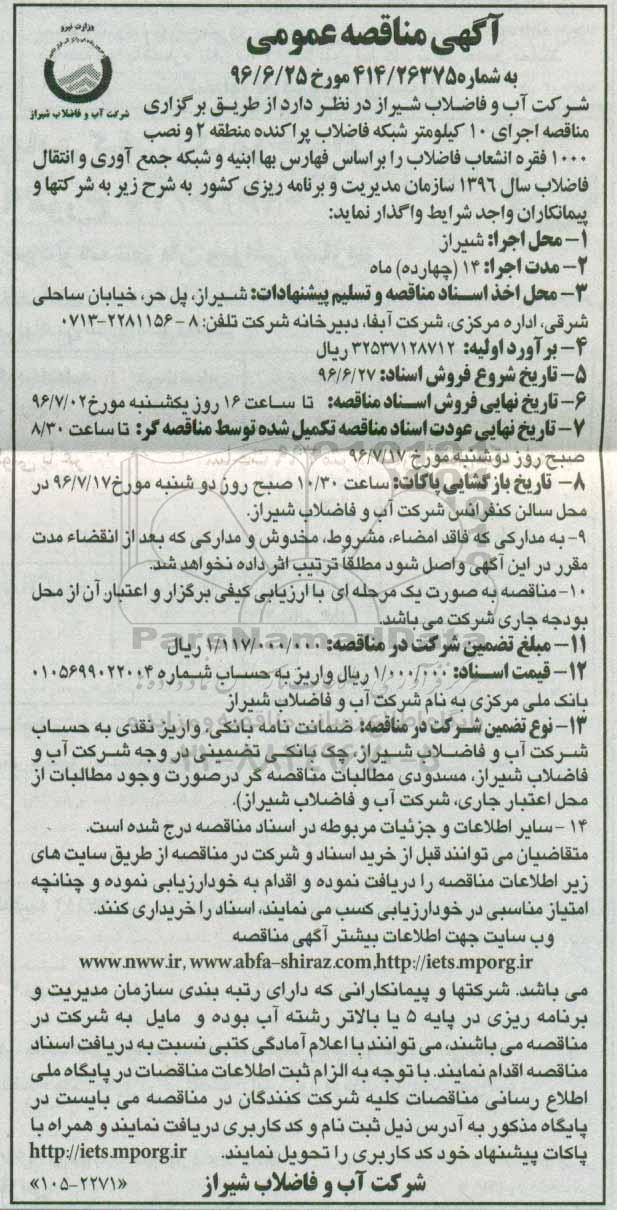 وزارت نیرو
شرکت آب و فاضلاب شیراز
آگهی مناقصه عمومی
به شماره ۴۱۴/۲۶۳۷۵ مورخ ۹۶/۶/۲۵
شرکت آب و فاضلاب شیراز در نظر دارد از طریق برگزاری
مناقصه اجرای ۱۰ کیلومتر شبکه فاضلاب پراکنده منطقه ۲ و نصب
۱۰۰۰ فقره انشعاب فاضلاب را براساس فهارس بها ابنیه و شبکه جمع آوری و انتقال
فاضلاب سال ۱۳۹۶ سازمان مدیریت و برنامه ریزی کشور به شرح زیر به شرکتها و
پیمانکاران واجد شرایط واگذار نماید:
۱- محل اجرا: شیراز
۲- مدت اجرا: ۱۴ (چهارده) ماه
۳- محل اخذ اسناد مناقصه و تسلیم پیشنهادات: شیراز، پل حر، خیابان ساحلی
شرقی، اداره مرکزی، شرکت آبفا، دبیرخانه شرکت تلفن: ۸-۲۲۸۱۱۵۶-۰۷۱۳
۴- برآورد اولیه: ۳۲۵۳۷۱۲۸۷۱۲ ریال
۵- تاریخ شروع فروش اسناد: ۹۶/۶/۲۷
۶- تاریخ نهایی فروش اسناد مناقصه: تا ساعت ۱۶ روز یکشنبه مورخ ۹۶/۷/۰۲
۷- تاریخ نهایی عودت اسناد مناقصه تکمیل شده توسط مناقصه گر: تا ساعت ۸/۳۰
صبح روز دوشنبه مورخ ۹۶/۷/۱۷
۸- تاریخ بازگشایی پاکات: ساعت ۱۰/۳۰ صبح روز دو شنبه مورخ ۹۶/۷/۱۷ در
محل سالن کنفرانس شرکت آب و فاضلاب شیراز.
۹- به مدارکی که فاقد امضاء، مشروط، مخدوش و مدارکی که بعد از انقضاء مدت
مقرر در این آگهی واصل شود مطلقاً ترتیب اثر داده نخواهد شد.
۱۰- مناقصه به صورت یک مرحله ای با ارزیابی کیفی برگزار و اعتبار آن از محل
بودجه جاری شرکت می باشد.
ParsNamadData
۱۱- مبلغ تضمین شرکت در مناقصه: ۱/۱۱۷/۰۰۰/۰۰۰ ریال
۱۲- قیمت اسناد: ۱/۰۰۰/۰۰۰ ریال واریز به حساب شماره ۰۱۰۵۶۹۹۰۲۲۰۰۴
بانک ملی مرکزی به نام شرکت آب و فاضلاب شیراز
۱۳- نوع تضمین شرکت در مناقصه: ضمانت نامه بانکی، واریز نقدی به حساب
شرکت آب و فاضلاب شیراز، چک بانکی تضمینی در وجه شرکت آب و
فاضلاب شیراز، مسدودی مطالبات مناقصه گر درصورت وجود مطالبات از
محل اعتبار جاری، شرکت آب و فاضلاب شیراز).
۱۴- سایر اطلاعات و جزئیات مربوطه در اسناد مناقصه درج شده است.
متقاضیان می توانند قبل از خرید اسناد و شرکت در مناقصه از طریق سایت های
زیر اطلاعات مناقصه را دریافت نموده و اقدام به خودارزیابی نموده و چنانچه
امتیاز مناسبی در خودارزیابی کسب می نمایند، اسناد را خریداری کنند.
وب سایت جهت اطلاعات بیشتر آگهی مناقصه
www.nww.ir, www.abfa-shiraz.com,http://iets.mporg.ir
می باشد. شرکتها و پیمانکارانی که دارای رتبه بندی سازمان مدیریت و
برنامه ریزی در پایه ۵ یا بالاتر رشته آب بوده و مایل به شرکت در
مناقصه می باشند، می توانند با اعلام آمادگی کتبی نسبت به دریافت اسناد
مناقصه اقدام نمایند. با توجه به الزام ثبت اطلاعات مناقصات در پایگاه ملی
اطلاع رسانی مناقصات کلیه شرکت کنندگان در مناقصه می بایست در
پایگاه مذکور به آدرس ذیل ثبت نام و کد کاربری دریافت نمایند و همراه با
پاکات پیشنهاد خود کد کاربری را تحویل نمایند. http://iets.mporg.ir
شرکت آب و فاضلاب شیراز «۱۰۵-۲۲۷۱»